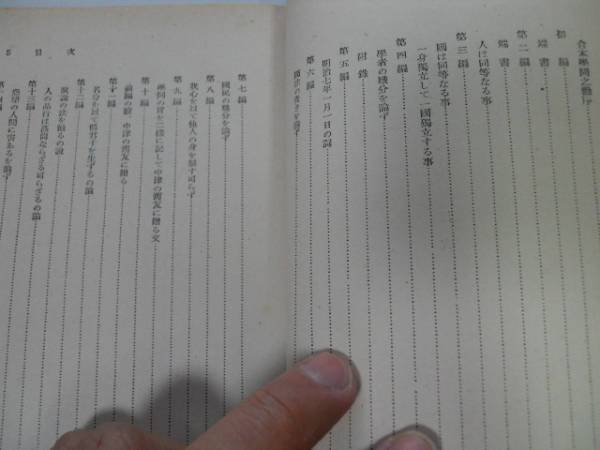 合本學問之勸序
初編
端書
第二編
端書
人は同等なる事
第三編
國は同等なる事
一身獨立して一國獨立する事
第四編
學者の職分を論ず
附錄
第五編
明治七年一月一日の詞
第六編
國法の貴きを論ず
目次
第七編
國民の職分を論ず
第八編
我心を以て他人の身を制す可らず
第九編
學問の旨を二樣に記して中津の舊友に贈る文
第十編
前編の續、中津の舊友に贈る
第十一編
名分を以て僞君子を生ずるの論
第十二編
演說の法を勸るの說
人の品行は高尙ならざる可らざるの論
第十三編
怨望の人間に害あるを論ず
第十四編